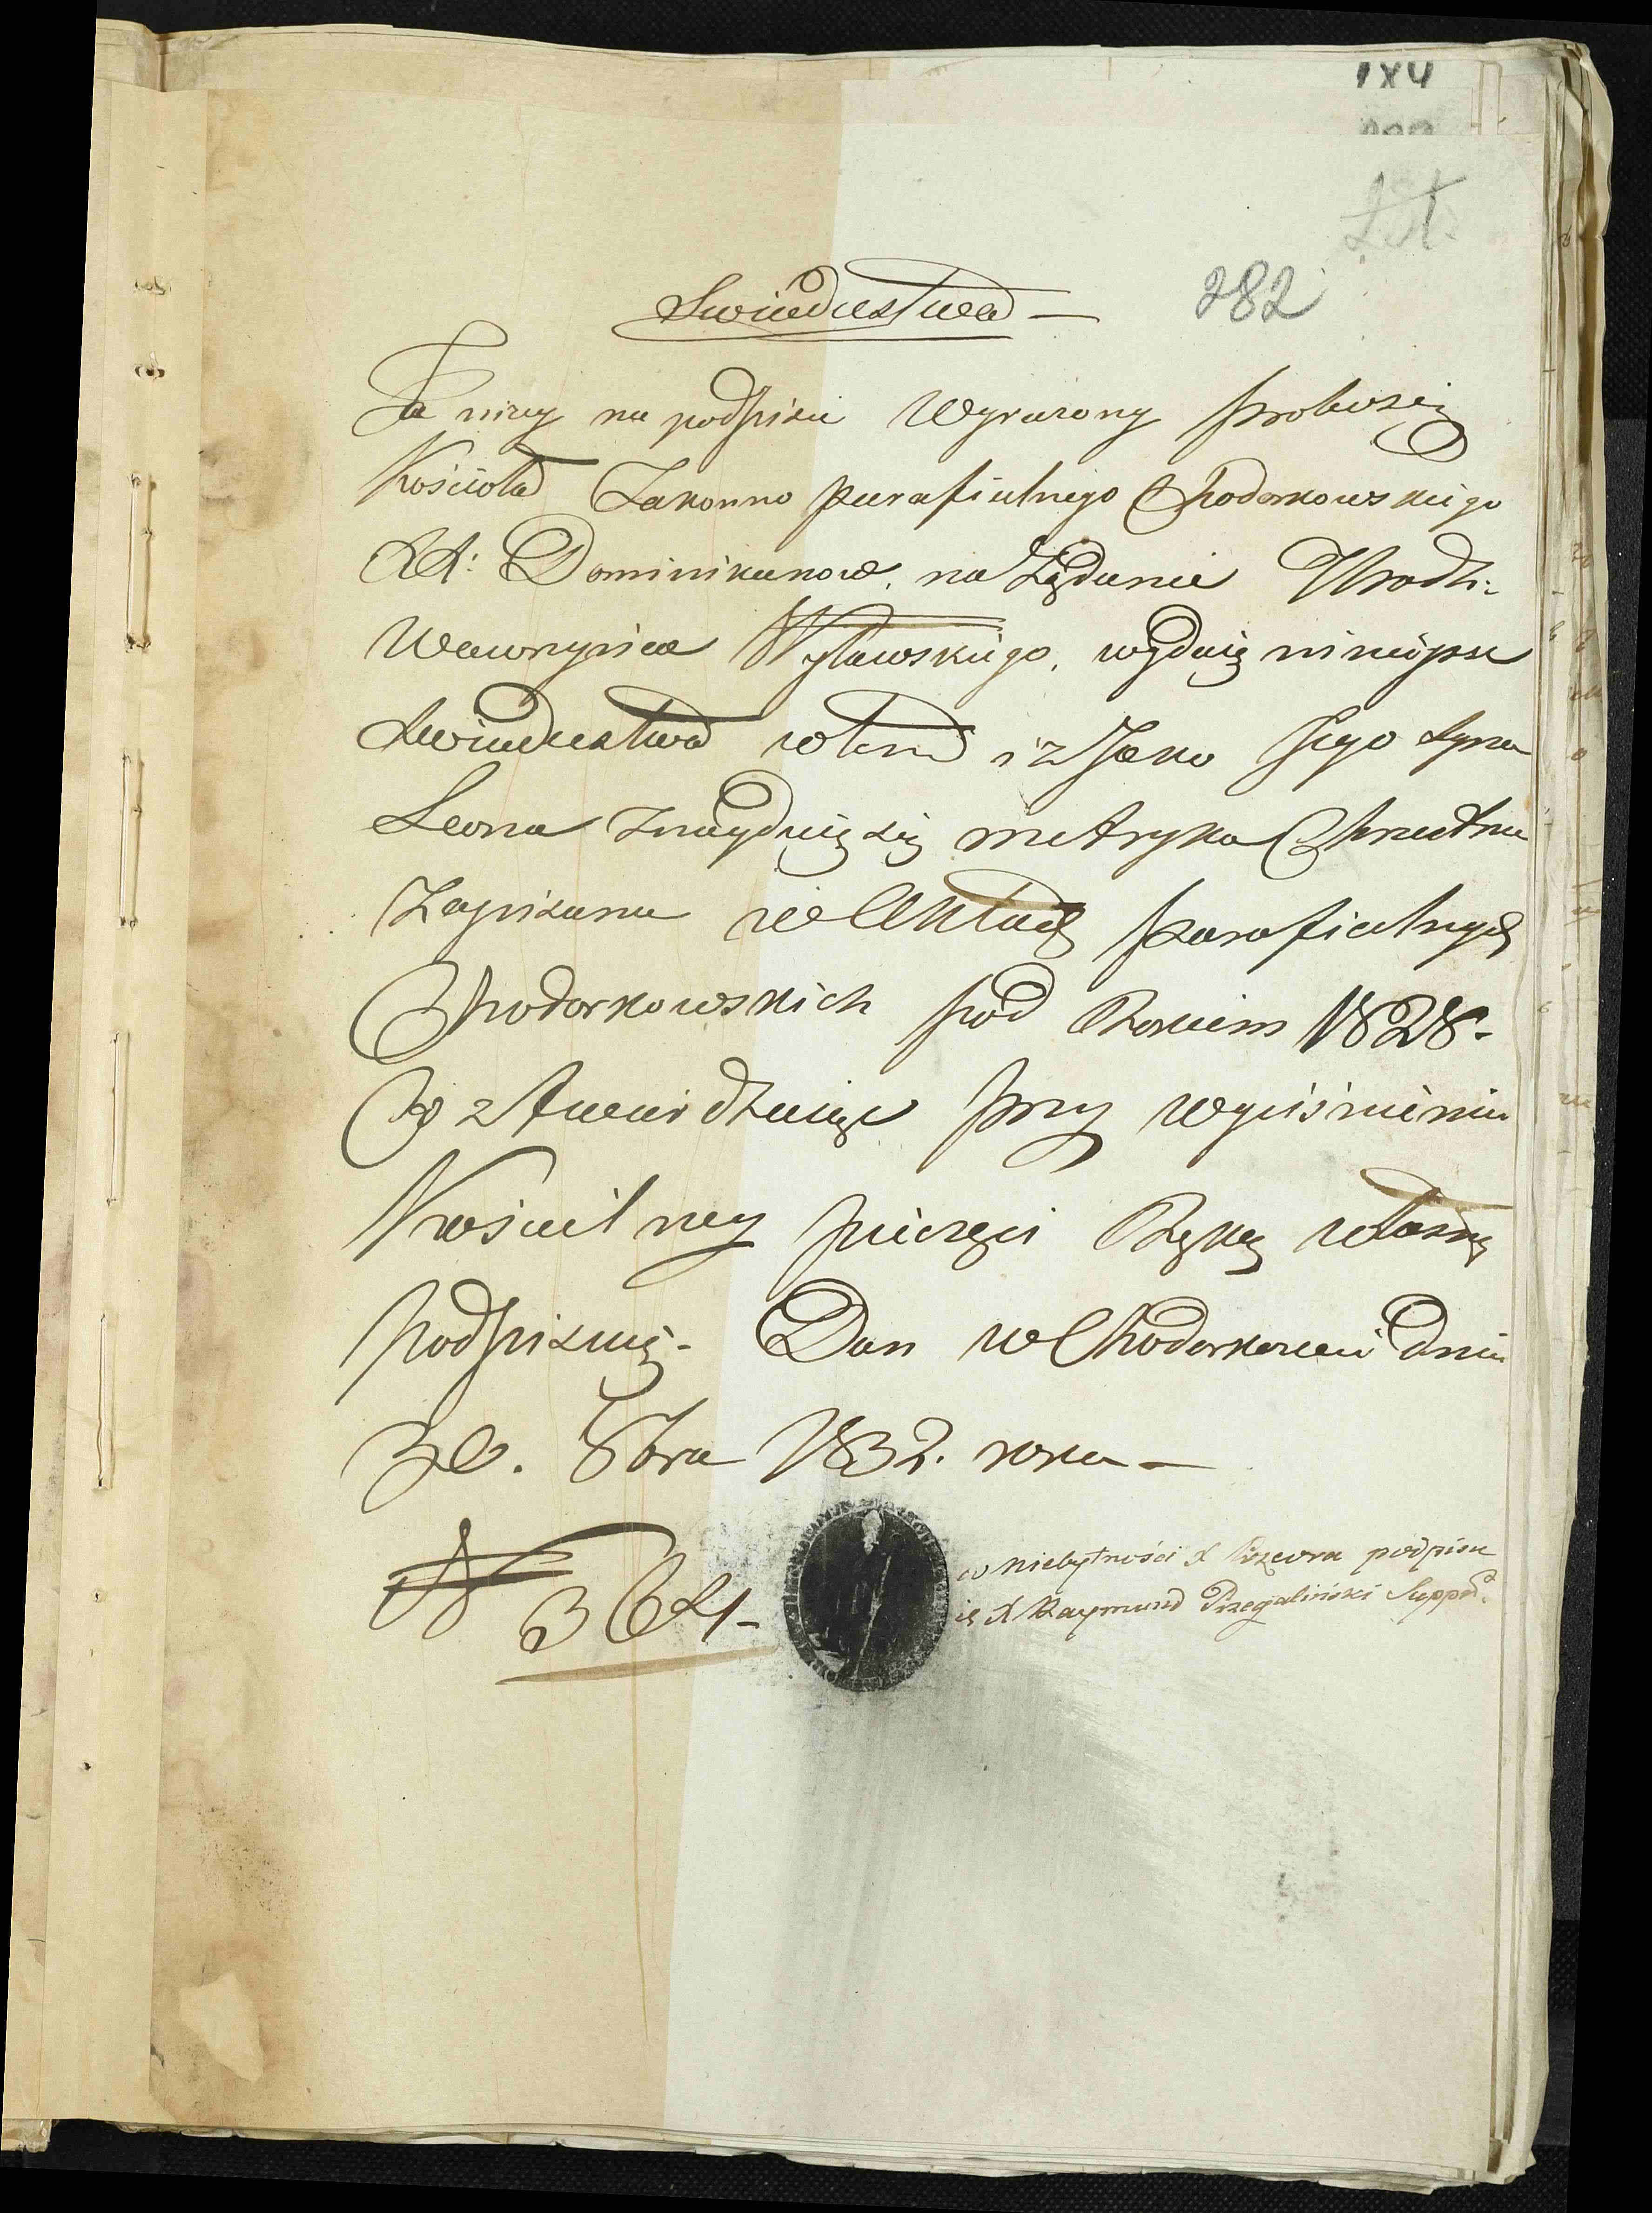 184
Lit.
282
Swiadectwo —
Ja niżey na podpisie Wyrażony Proboszcz
Kościoła Zakonno parafialnego Chodorkowskiego
XX: Dominikanow, na Żądanie Urodz:
Wawrzynca Wyławskiego, wydaię ninieysze
Swiadectwo w tem iż Jako Jego Syna
Leona Znayduię się metryka Chrzestna
Zapisana w Aktach parafialnych
Chodorkowskich pod Rokiem 1828.
Co ztwierdzaiąc przy wyciśnieniu
Kościelney pieczęci Ręką własną
podpisuię. Dan w Chodorkowie Dnia
30. 8bra 1832. roku —
N 364 -
w niebytności X Przeora podpisu
ię X Raymund Przegaliński Supprr.